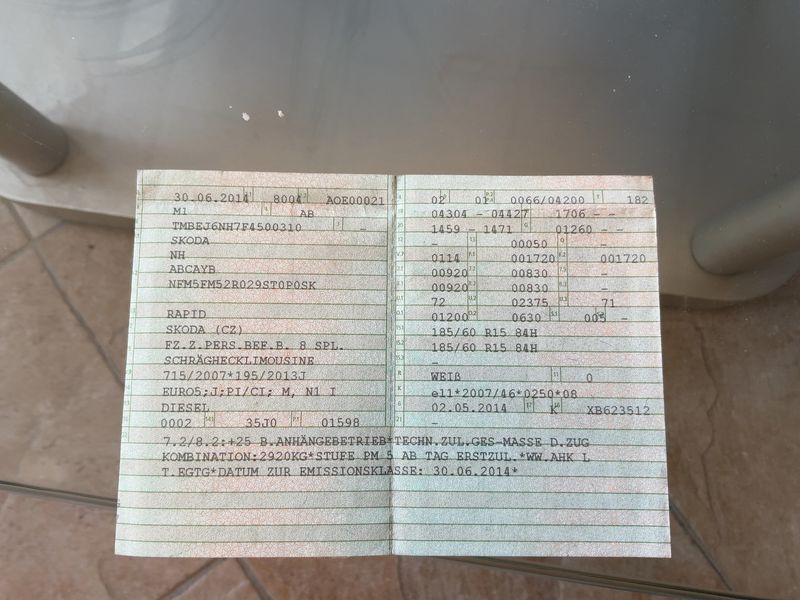 30.06.2014 8004 AOE00021
M1 AB
TMBEJ6NH7F4500310 -
SKODA
NH
ABCAYB
NFM5FM52R029ST0P0SK
RAPID
SKODA (CZ)
FZ.Z.PERS.BEF.B. 8 SPL.
SCHRÄGHECKLIMOUSINE
715/2007*195/2013J
EURO5;J;PI/CI; M, N1 I
DIESEL
0002 35J0 01598
02 01 0066/04200 182
04304 - 04427 1706 - -
1459 - 1471 01260 - -
- 00050 -
0114 001720 001720
00920 00830 -
00920 00830 -
72 02375 71
01200 0630 005 -
185/60 R15 84H
185/60 R15 84H
-
WEIß 0
e11*2007/46*0250*08
02.05.2014 K XB623512
-
7.2/8.2:+25 B.ANHÄNGEBETRIEB*TECHN.ZUL.GES-MASSE D.ZUG
KOMBINATION:2920KG*STUFE PM 5 AB TAG ERSTZUL.*WW.AHK L
T.EGTG*DATUM ZUR EMISSIONKLASSE: 30.06.2014*